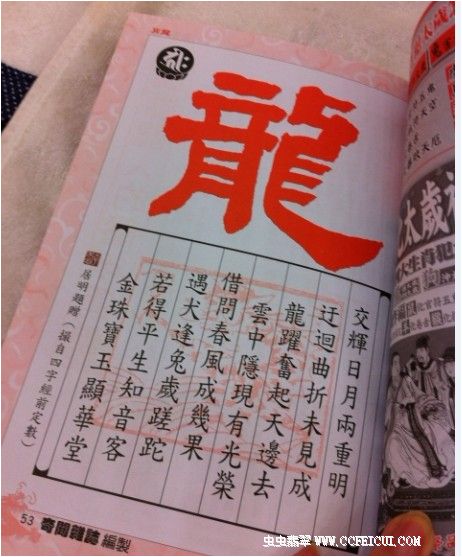 龍
交輝日月兩重明
迂迴曲折未見成
龍躍奮起天邊去
雲中隱現有光榮
借問春風成幾果
遇犬逢兔歲蹉跎
若得平生知音客
金珠寶玉顯華堂
居明題贈(擷自四字經前定數)
53 奇聞雜誌 編製
太歲
虫虫翡翠 WWW.CCFEICUI.COM